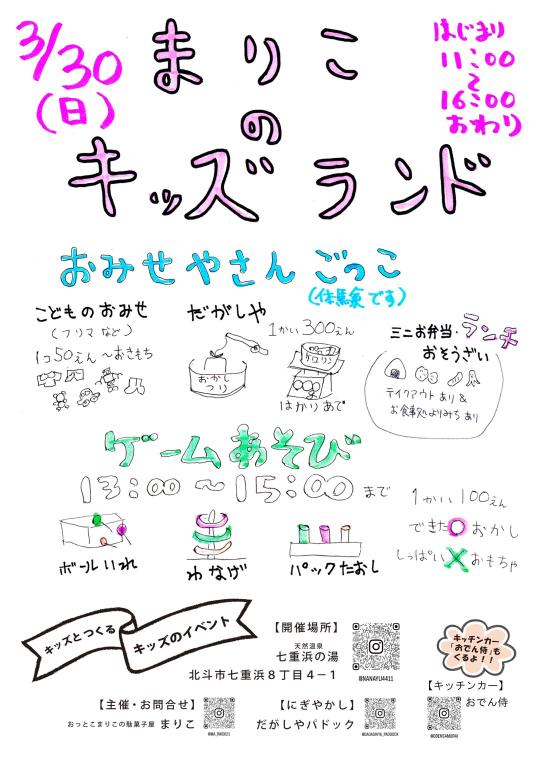 3/30
(日)
まりこ
の
キッズランド
はじまり
11:00
〜
16:00
おわり
おみせやさんごっこ
(体験です)
こどものおみせ
(フリマなど)
1コ50えん〜おきもち
だがしや
1かい300えん
おかし
つり
ケロリン
はかりあて
ミニお弁当・ランチ
おそうざい
テイクアウトあり&
お食事処よりみちあり
ゲームあそび
13:00〜15:00まで
ボールいれ
わなげ
パックたおし
1かい100えん
できた○おかし
しっぱい×おもちゃ
キッズとつくる
キッズのイベント
【開催場所】
天然温泉
七重浜の湯
北斗市七重浜8丁目4−1
@NANAYU4411
キッチンカー
「おでん侍」も
くるよ!!
【キッチンカー】
おでん侍
@ODENSAMURAI
【主催・お問合せ】
おっとこまりこの駄菓子屋 まりこ
【にぎやかし】
だがしやパドック
@DAGASHIYA_PADDOCK